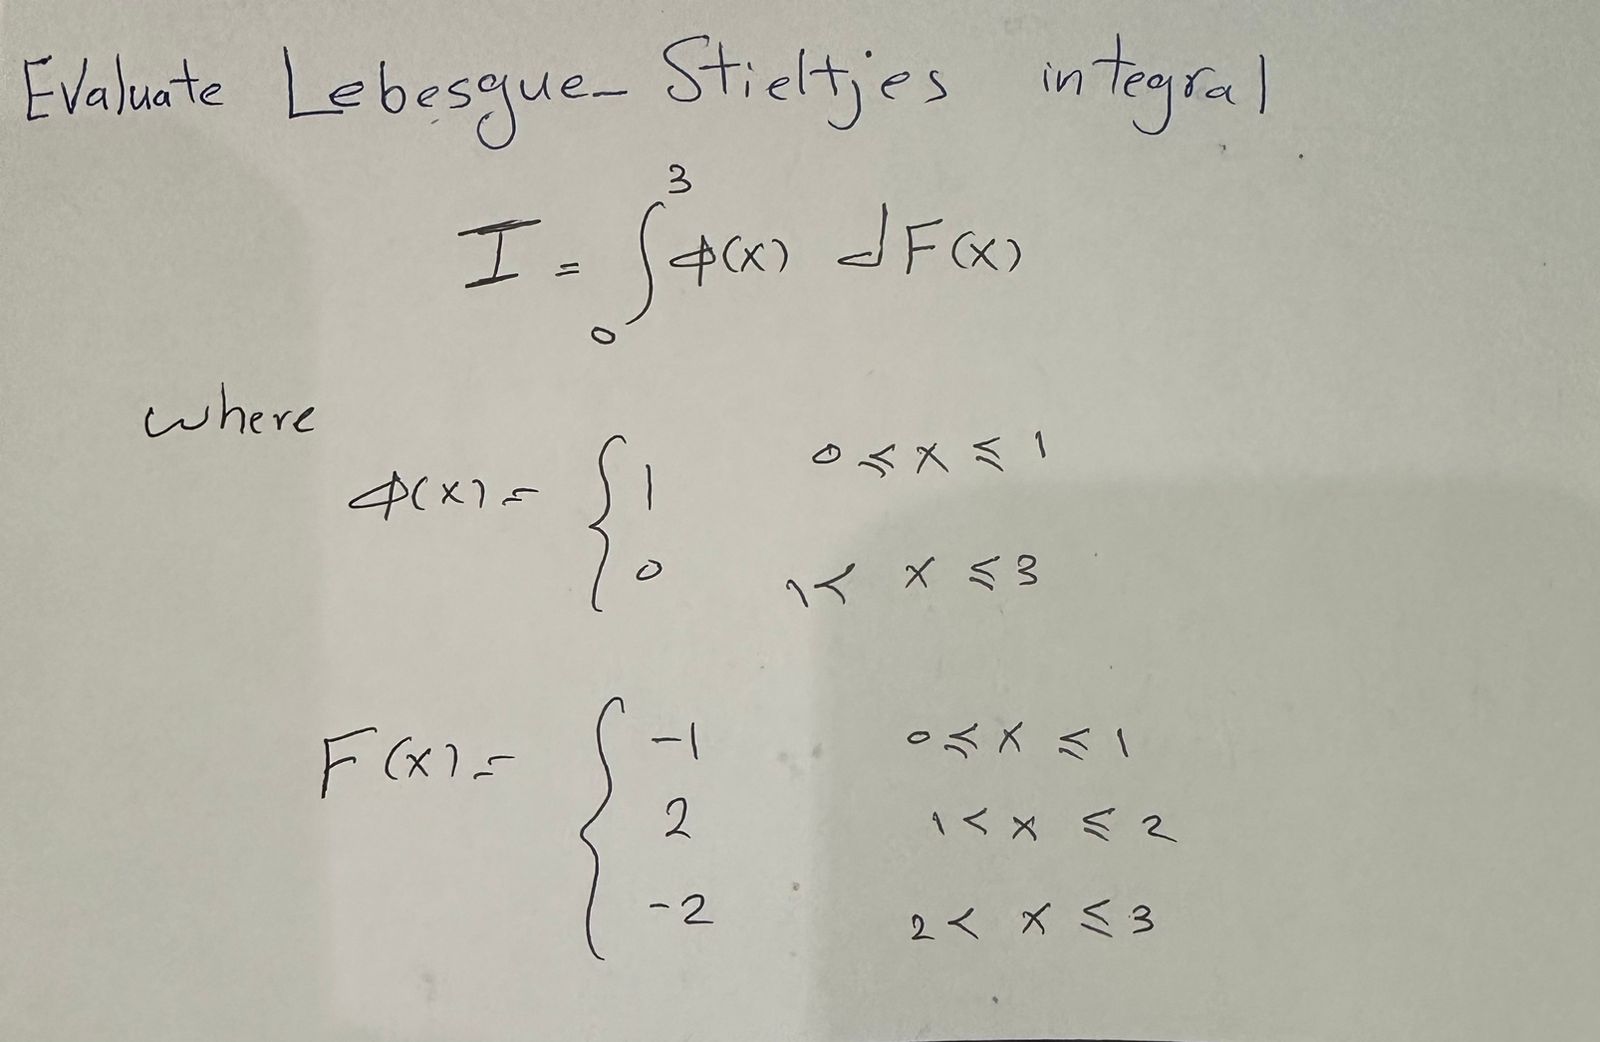 Evaluate Lebesgue-Stieltjes integral
I = ∫₀³ ϕ(x) dF(x)
where
ϕ(x) = { 1 0 ≤ x ≤ 1
0 1 < x ≤ 3
F(x) = { -1 0 ≤ x ≤ 1
2 1 < x ≤ 2
-2 2 < x ≤ 3